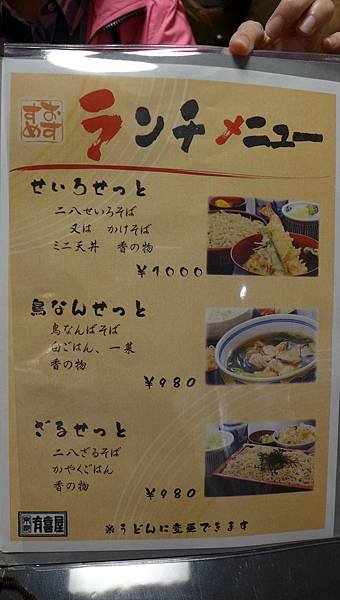 おすすめ
ランチメニュー
せいろせっと
二八せいろそば
又は かけそば
ミニ天丼 香の物
¥1000
鳥なんせっと
鳥なんばそば
白ごはん、一菜
香の物
¥980
ざるせっと
二八ざるそば
かやくごはん
香の物
¥980
有喜屋
※うどんに変更できます